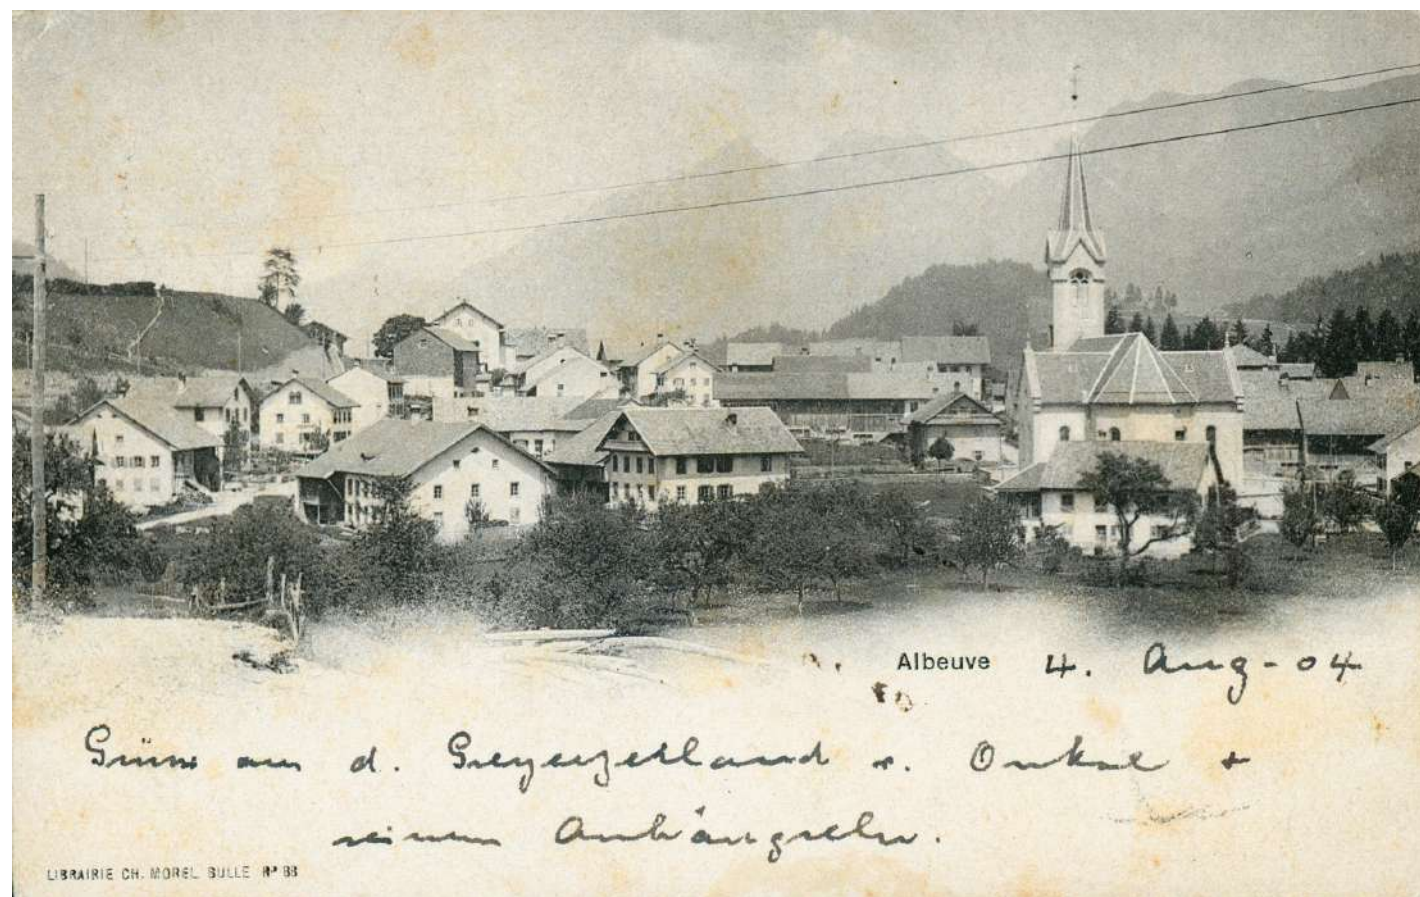 Albeuve 4. Aug - 04
Gruss aus d. Greyerzerland v. Onkel +
seinen Anhängseln.
LIBRAIRIE CH. MOREL BULLE Nº 88